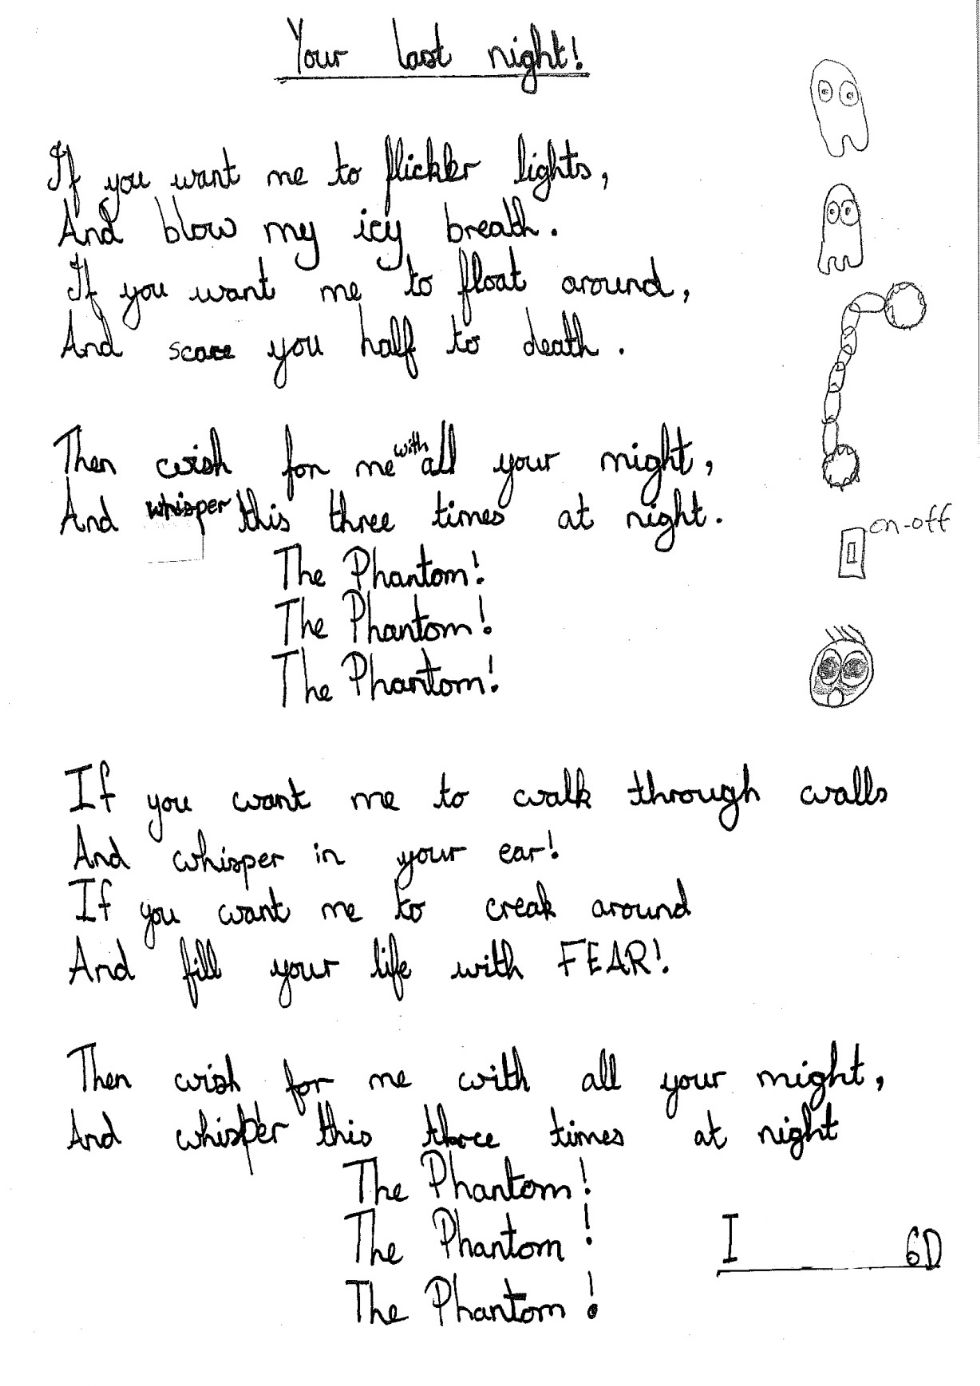 Your last night!
If you want me to flicker lights,
And blow my icy breath.
If you want me to float around,
And scare you half to death.
Then wish for me with all your might,
And whisper this three times at night.
The Phantom!
The Phantom!
The Phantom!
on-off
If you want me to walk through walls
And whisper in your ear!
If you want me to creak around
And fill your life with FEAR!
Then wish for me with all your might,
And whisper this three times at night
The Phantom!
The Phantom!
The Phantom!
I 6D